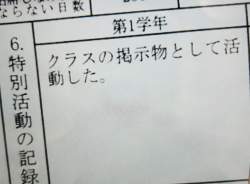 ならない日数
第1学年
6.特別活動の記録
クラスの掲示物として活
動した。